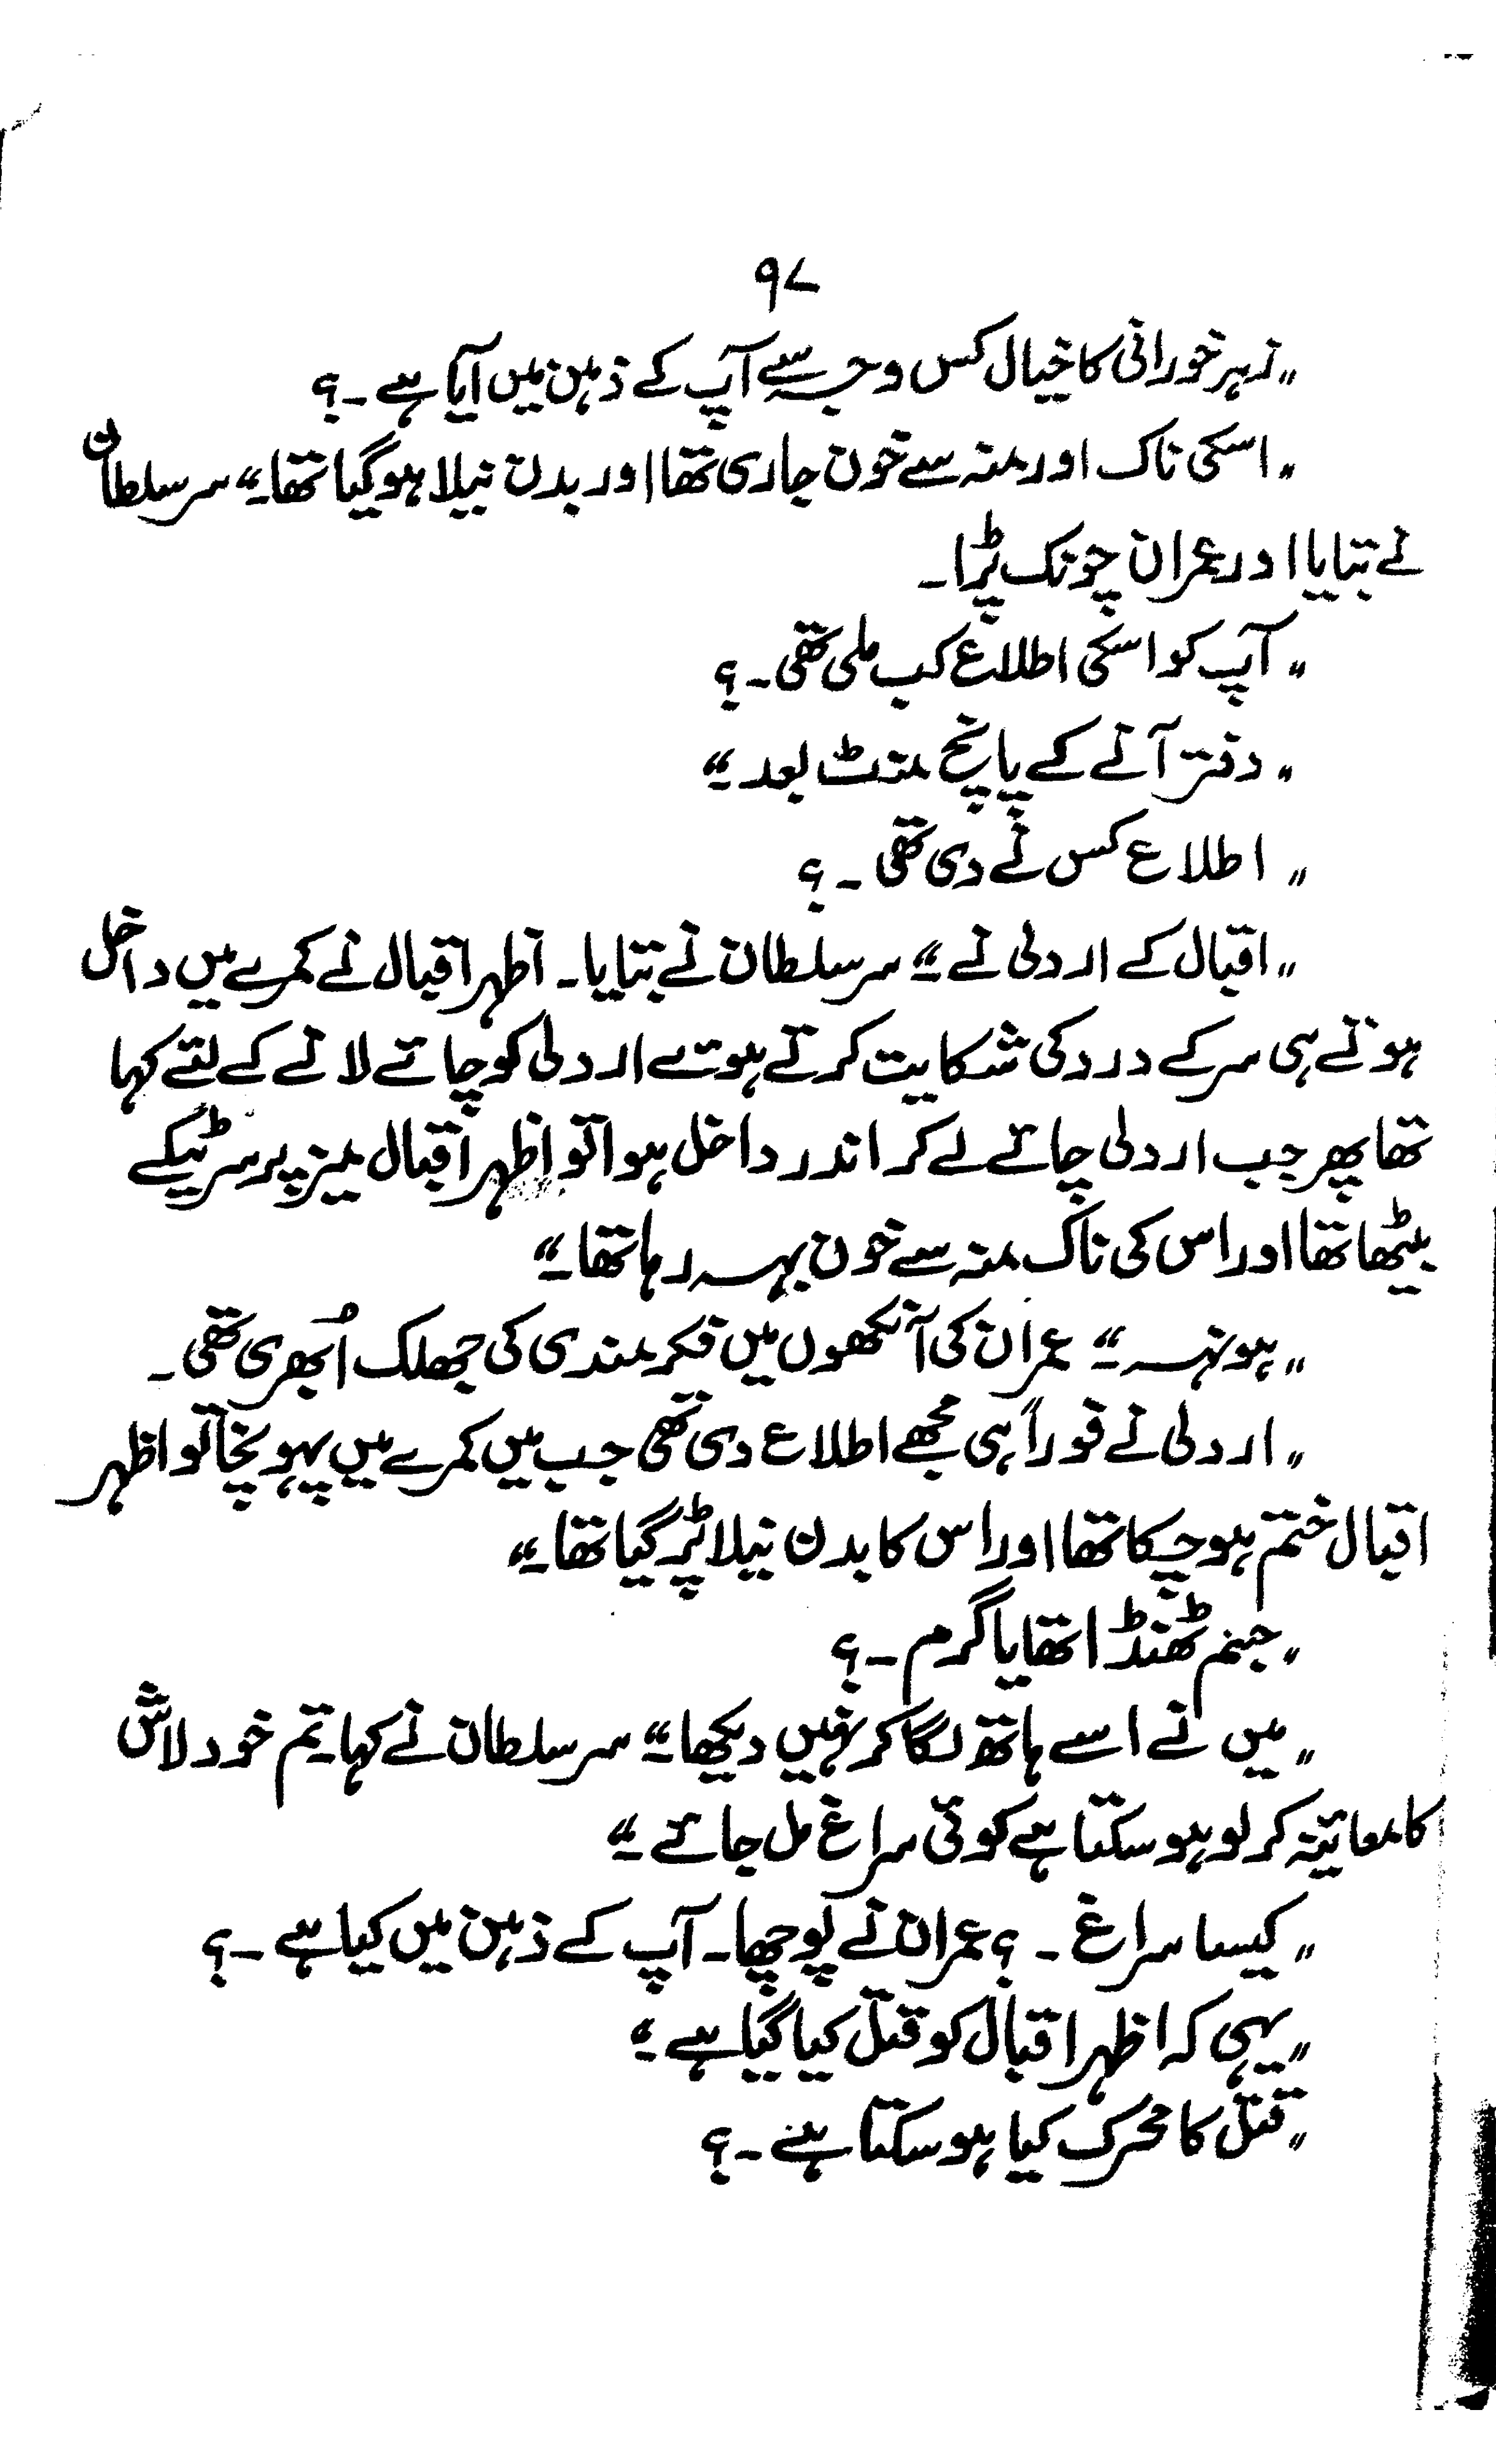 ۹۷
"زہر خورانی کا خیال کس وجہ سے آپ کے ذہن میں آیا ہے ۔؟
"اسکی ناک اور منہ سے خون جاری تھا اور بدن نیلا ہو گیا تھا۔" سر سلطان
نے بتایا اور عمران چونک پڑا۔
"آپ کو اسکی اطلاع کب ملی تھی ۔؟
"دفتر آنے کے پانچ منٹ بعد ۔"
"اطلاع کس نے دی تھی ۔؟
"اقبال کے اردلی نے ۔" سر سلطان نے بتایا۔ اظہر اقبال نے کمرے میں داخل
ہوتے ہی سر کے درد کی شکایت کرتے ہوئے اردلی کو چائے لانے کے لئے کہا
تھا پھر جب اردلی چائے لے کر اندر داخل ہوا تو اظہر اقبال میز پر سر ٹیکے
بیٹھا تھا اور اس کی ناک منہ سے خون بہہ رہا تھا ۔"
"ہونہہ ۔" عمران کی آنکھوں میں فکرمندی کی جھلک اُبھری تھی ۔
"اردلی نے فوراً ہی مجھے اطلاع دی تھی جب میں کمرے میں پہونچا تو اظہر
اقبال ختم ہو چکا تھا اور اس کا بدن نیلا پڑ گیا تھا ۔"
"جسم ٹھنڈا تھا یا گرم ۔؟
"میں نے اسے ہاتھ لگا کر نہیں دیکھا ۔" سر سلطان نے کہا۔ تم خود لاش
کا معائنہ کر لو ہو سکتا ہے کوئی سراغ مل جائے ۔"
"کیسا سراغ ۔؟ عمران نے پوچھا۔ آپ کے ذہن میں کیا ہے ۔؟
"یہی کہ اظہر اقبال کو قتل کیا گیا ہے ۔"
"قتل کا محرک کیا ہو سکتا ہے ۔؟